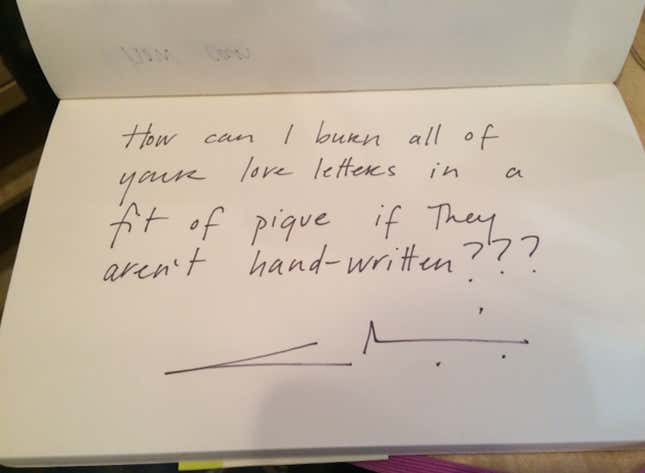 How can I burn all of
your love letters in a
fit of pique if They
aren't hand-written???